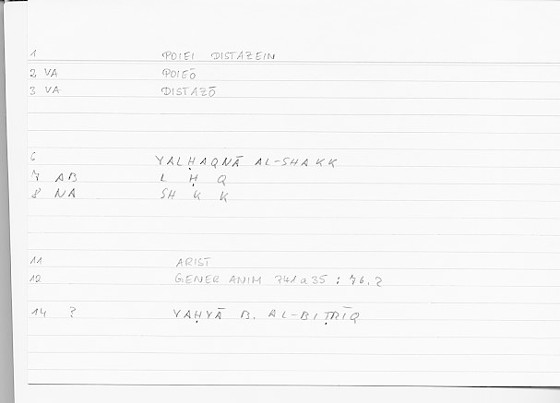 1 POIEI DISTAZEIN
2 VA POIEŌ
3 VA DISTAZŌ
6 YALḤAQNĀ AL-SHAKK
7 AB L Ḥ Q
8 NA SH K K
11 ARIST
12 GENER ANIM 741a35 : 76,2
14 ? YAḤYĀ B. AL-BIṬRĪQ